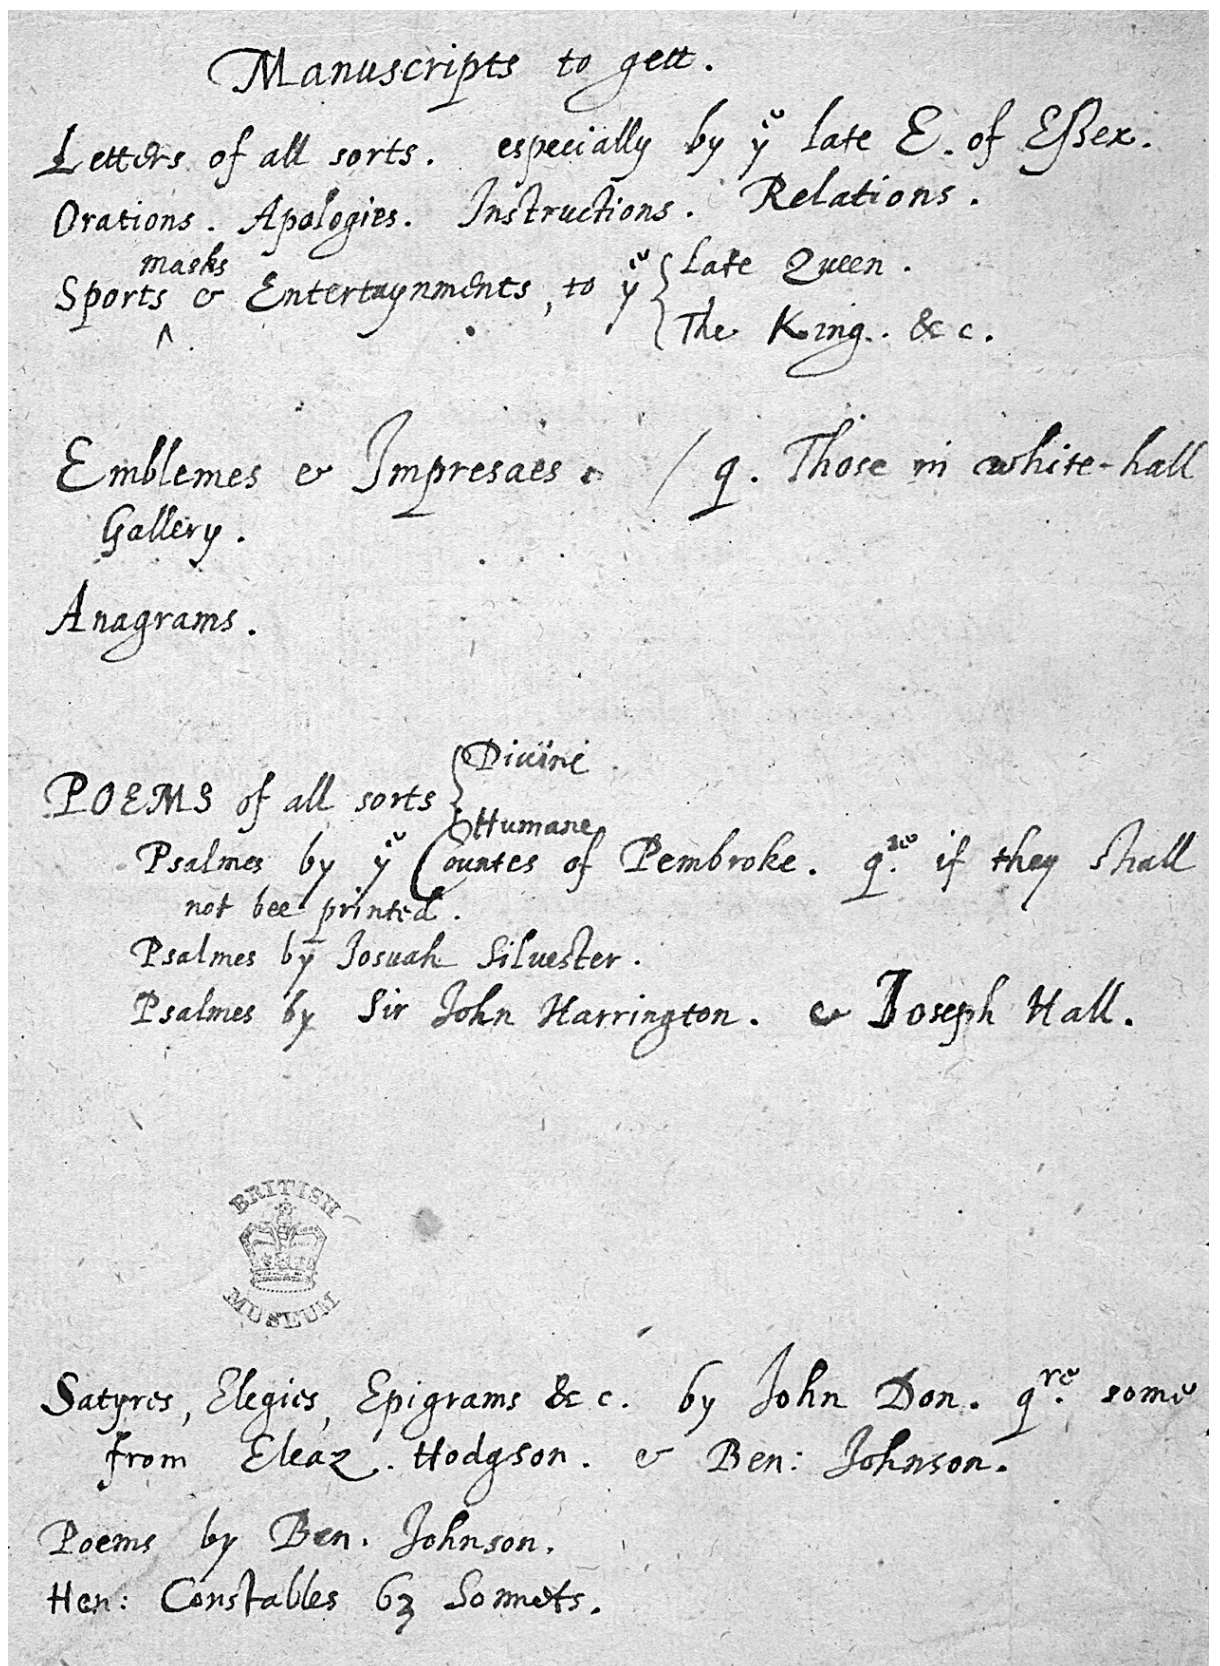 Manuscripts to gett.
Letters of all sorts. especially by yᵉ late E. of Eſsex.
Orations. Apologies. Instructions. Relations.
masks
Sports & Entertaynments, to yᵉ { Late Queen.
^
The King. &c.
Emblemes & Impresaes. / q. Those in white-hall
Gallery.
Anagrams.
POEMS of all sorts { Divine
Humane
Psalmes by yᵉ Countes of Pembroke. qʳᵉ. if they shall
not bee printed.
Psalmes by Josuah Silvester.
Psalmes by Sir John Harrington. & Joseph Hall.
BRITISH
MUSEUM
Satyres, Elegies, Epigrams &c. by John Don. qʳᵉ. some
from Eleaz. Hodgson. & Ben: Johnson.
Poems by Ben. Johnson.
Hen: Constables 63 Sonnets.